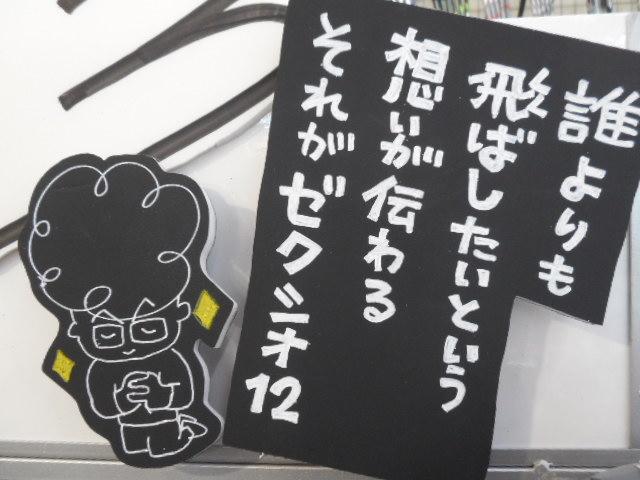 誰よりも
飛ばしたいという
想いが伝わる
それがゼクシオ12